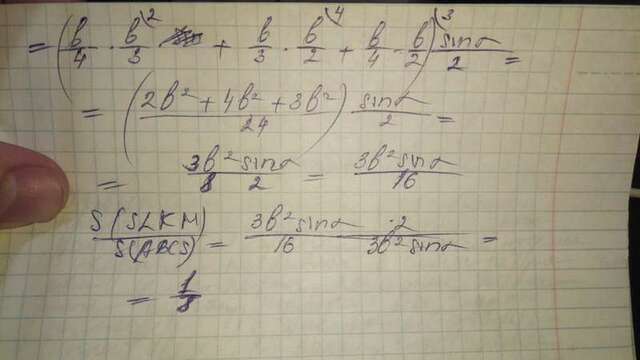 = (b/4 · b/3 \2 + b/3 · b/2 \4 + b/4 · b/2) \3 sinα/2 =
= (2b² + 4b² + 3b²/24) sinα/2 =
= 3b² sinα/8 2 = 3b² sinα/16
S(SLKM)/S(ABCS) = 3b² sinα · 2/16 3b² sinα =
= 1/8